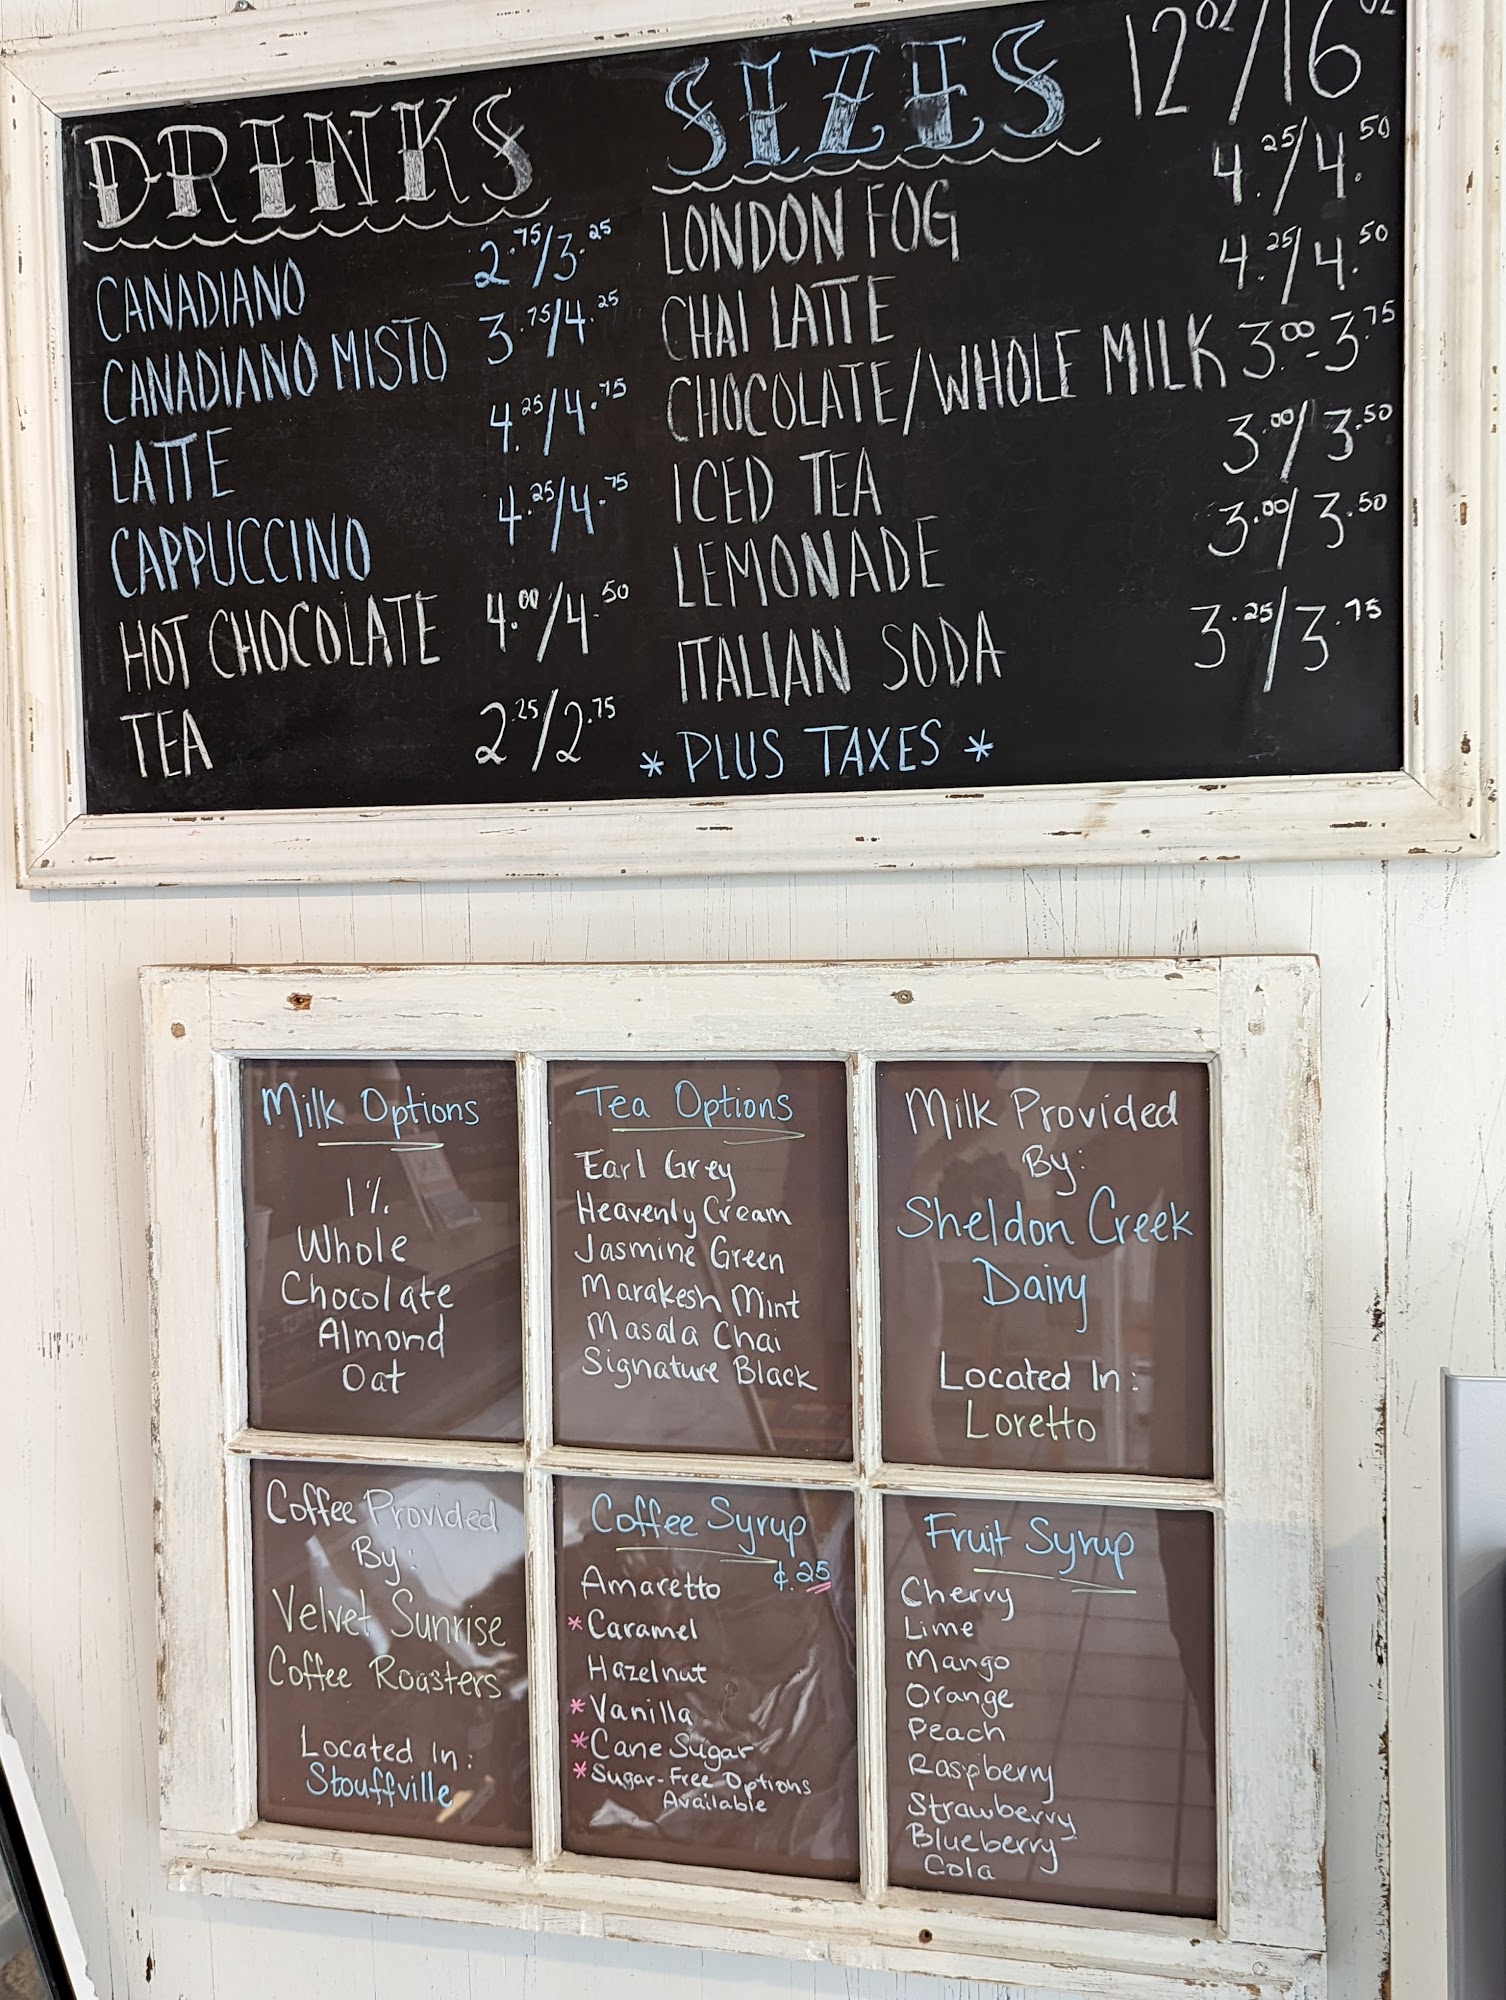 DRINKS
CANADIANO 2.75/3.25
CANADIANO MISTO 3.75/4.25
LATTE 4.25/4.75
CAPPUCCINO 4.25/4.75
HOT CHOCOLATE 4.00/4.50
TEA 2.25/2.75
SIZES 12oz/16oz
LONDON FOG 4.25/4.50
CHAI LATTE 4.25/4.50
CHOCOLATE/WHOLE MILK 3.00-3.75
ICED TEA 3.00/3.50
LEMONADE 3.00/3.50
ITALIAN SODA 3.25/3.75
*PLUS TAXES*
Milk Options
1%
Whole
Chocolate
Almond
Oat
Tea Options
Earl Grey
Heavenly Cream
Jasmine Green
Marakesh Mint
Masala Chai
Signature Black
Milk Provided
By:
Sheldon Creek
Dairy
Located In:
Loretto
Coffee Provided
By:
Velvet Sunrise
Coffee Roasters
Located In:
Stouffville
Coffee Syrup
¢.25
Amaretto
*Caramel
Hazelnut
*Vanilla
*Cane Sugar
*Sugar-Free Options
Available
Fruit Syrup
Cherry
Lime
Mango
Orange
Peach
Raspberry
Strawberry
Blueberry
Cola